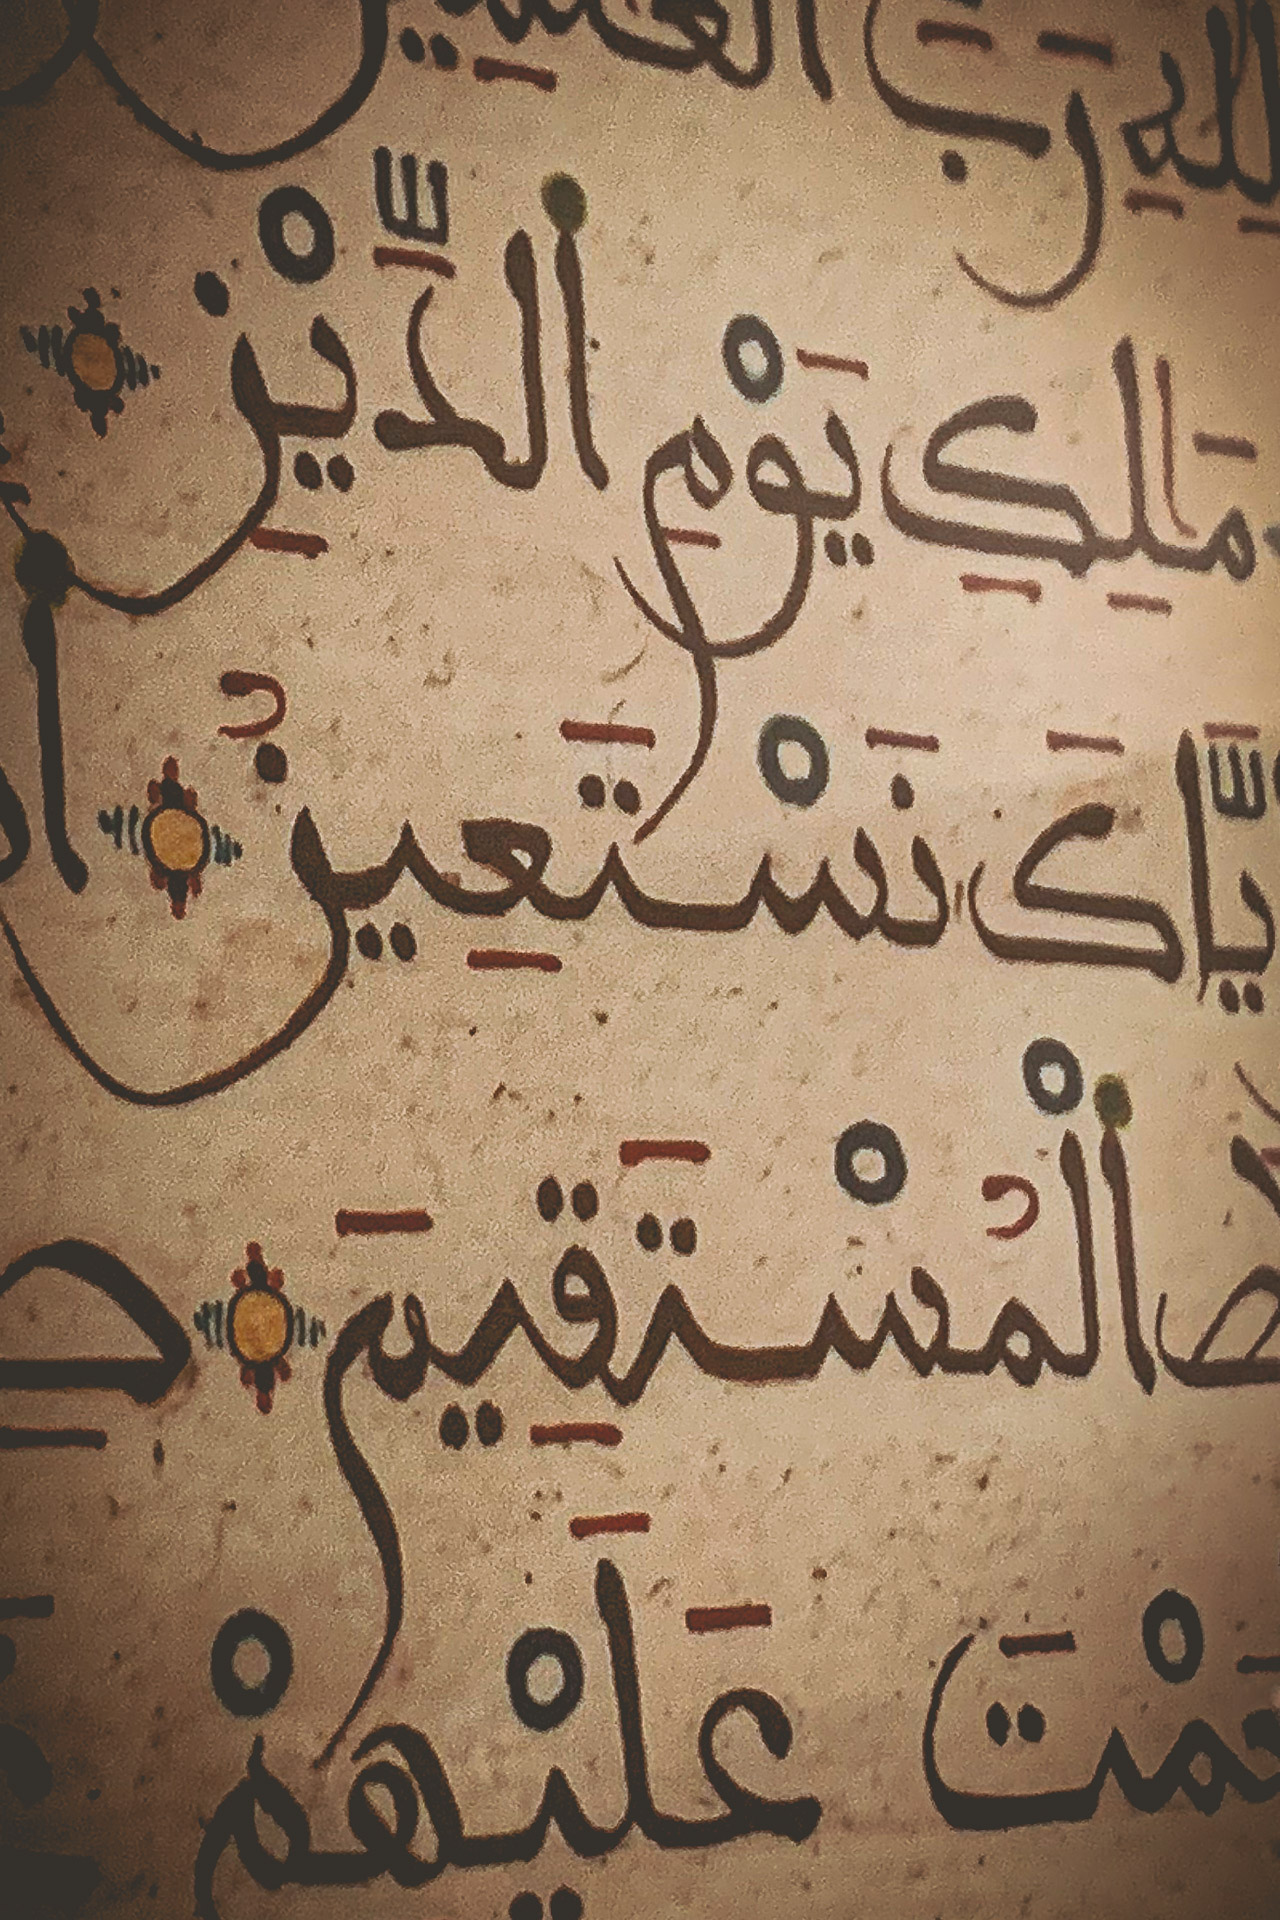 لِلهِ رَبِّ الْعَٰلَمِينَ
مَٰلِكِ يَوْمِ الدِّينِ
يَّاكَ نَسْتَعِينُ ا
ط الْمُسْتَقِيمَ صِ
عَمْتَ عَلَيْهِمْ